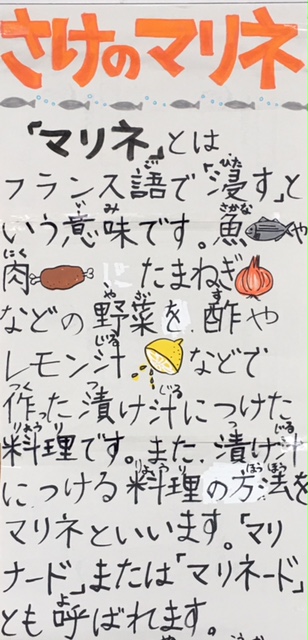 さけのマリネ
「マリネ」とは
フランス語で「浸す」と
いう意味です。魚や
肉 たまねぎ
などの野菜を、酢や
レモン汁 などで
作った漬け汁につけた
料理です。また、漬け汁
につける料理の方法を
マリネといいます。「マリ
ナード」または「マリネード」
とも呼ばれます。